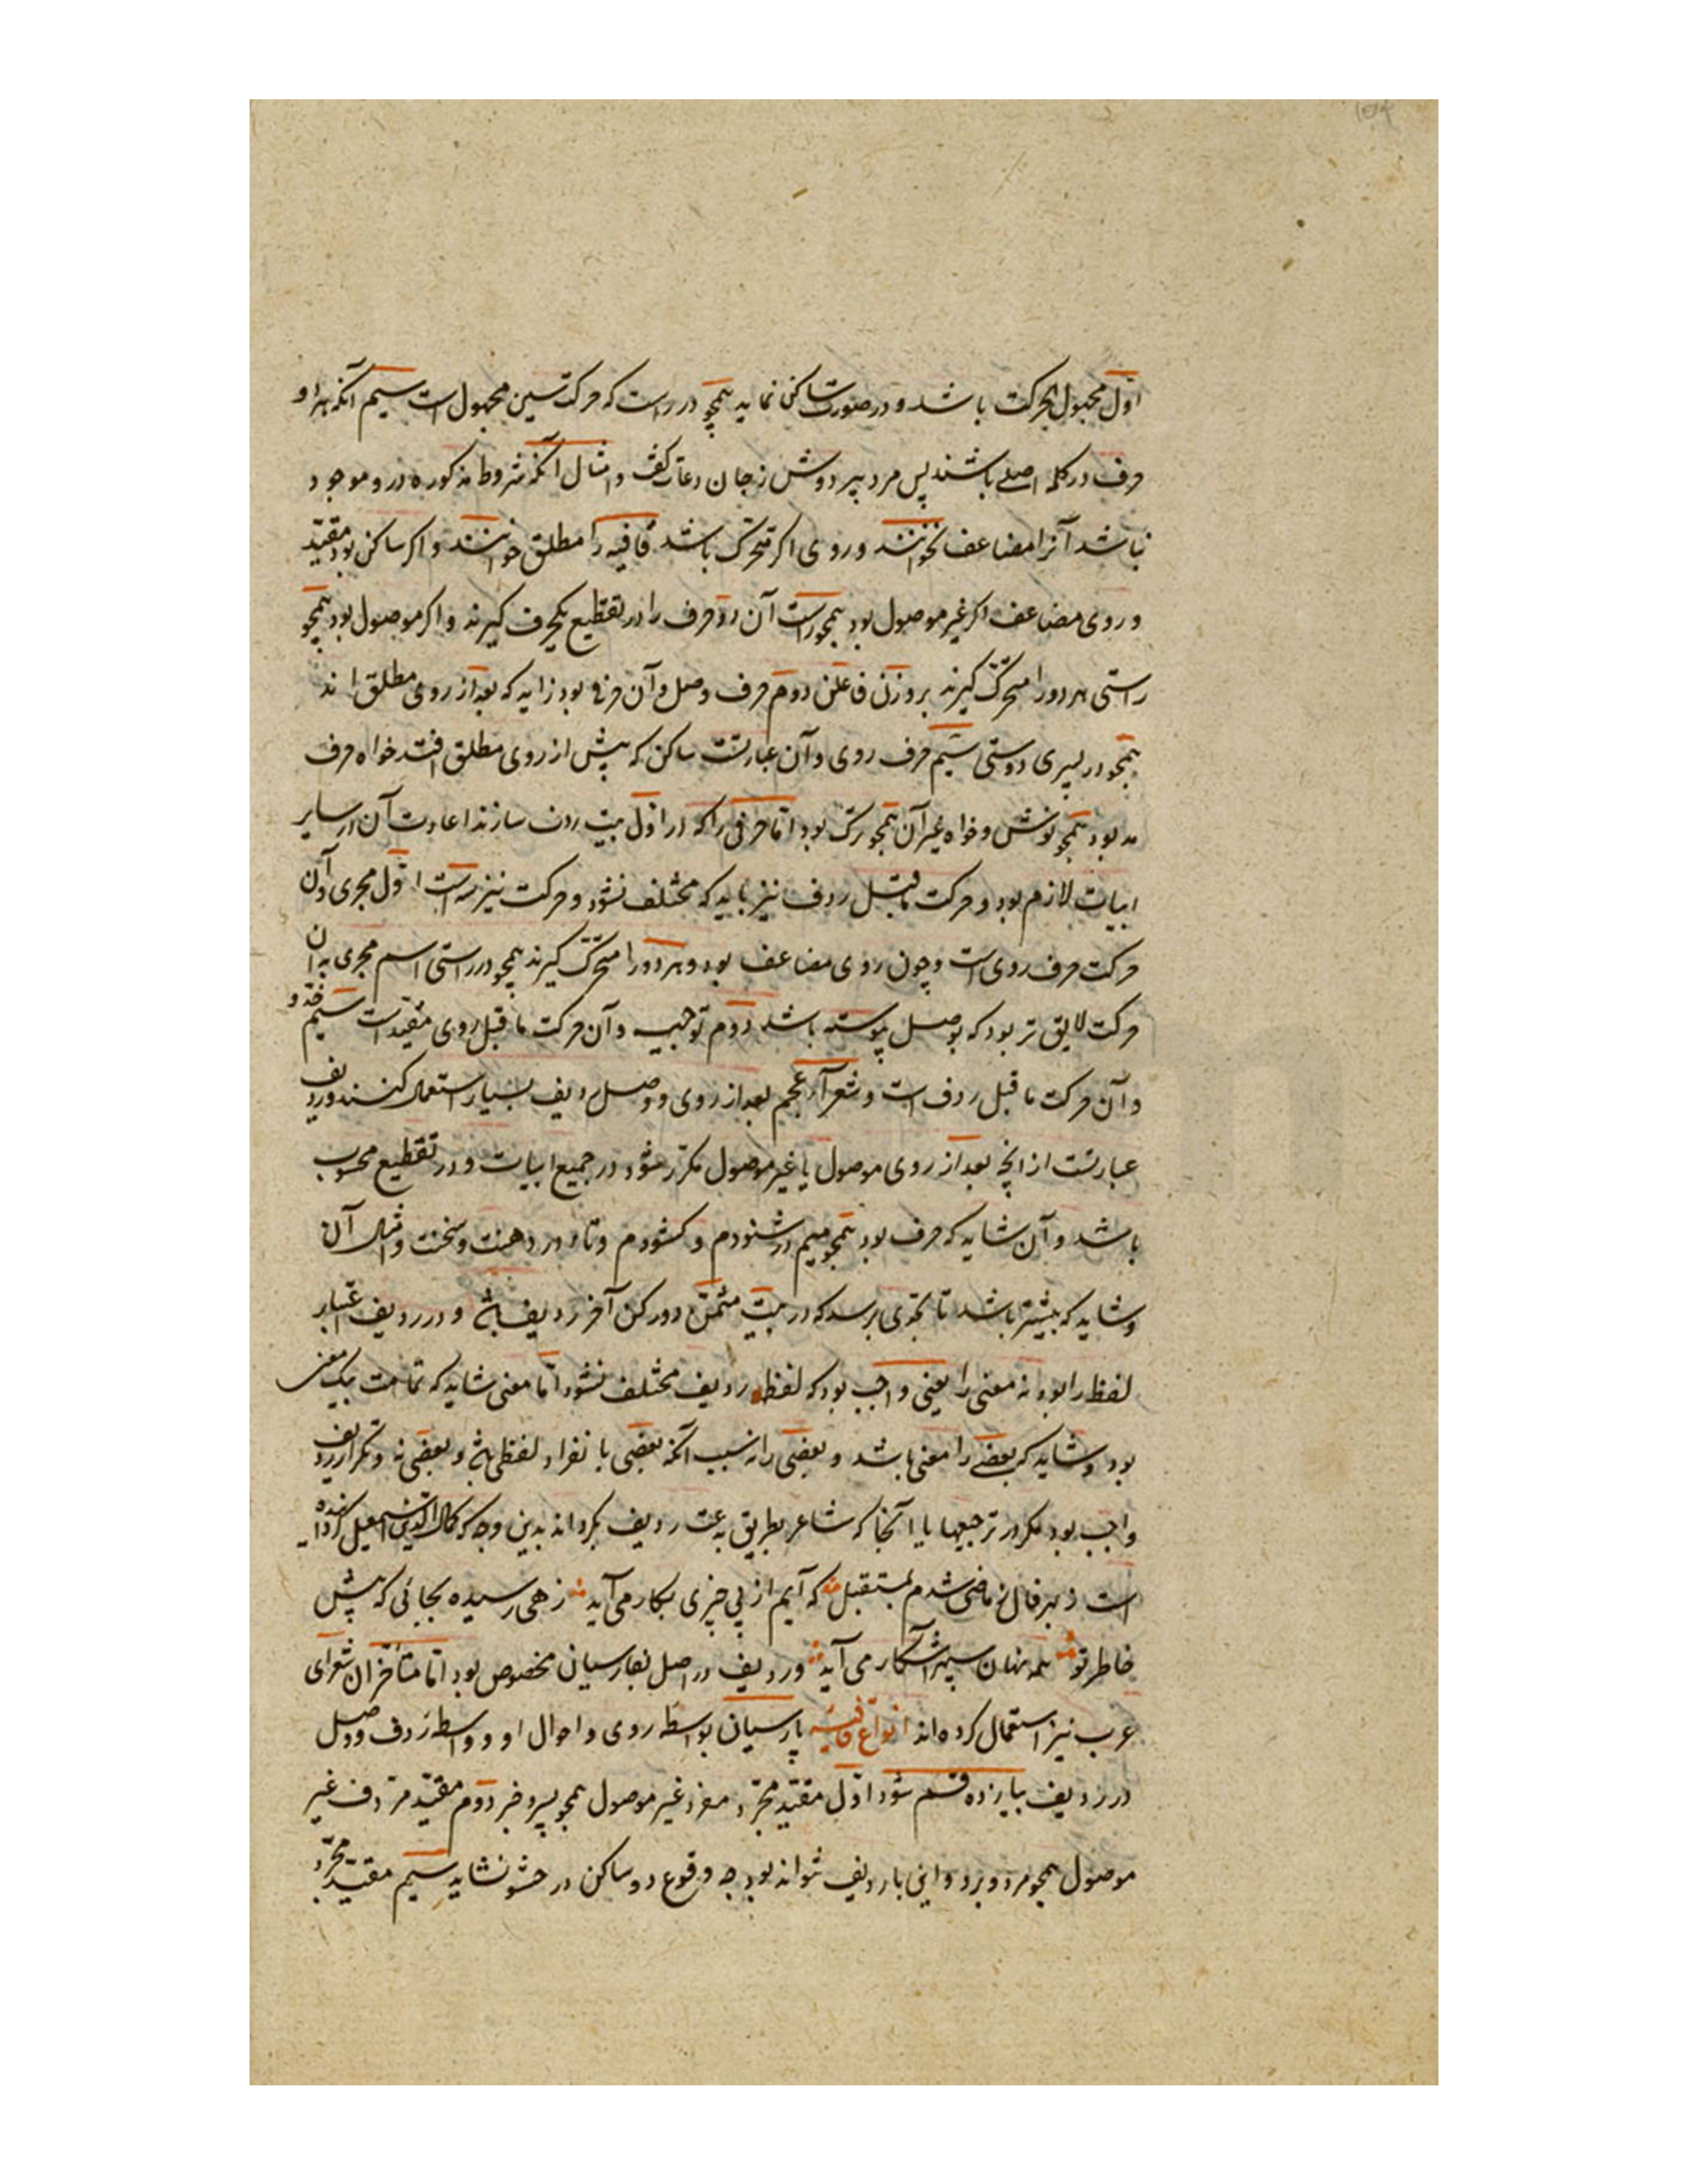 اول مجهول الحرکت باشد و در صورت ساکن نماید همچو در راست که حرکت سین مجهول است سیم آنکه هر دو
حرف در کلمه اصلی باشند پس مرد پیر دوش زجان و امثال آنکه شروط مذکوره درو موجود
نباشد آنرا مضاعف نخوانند و روی اکر متحرک باشد قافیه را مطلق خوانند و اکر ساکن بود مقید
و روی مضاعف اکر غیر موصول بود همچو راست آن دو حرف را در تقطیع یکحرف کیرند و اکر موصول بود همچو
راستی هر دو را متحرک کیرند بر وزن فاعلن دوم حرف وصل و آن حرفی بود زاید که بعد از روی مطلق اند
همچو در پسری دوستی سیم حرف روی و آن عبارتست ساکن که پیش از روی مطلق افتد خواه حرف
مد بود همچو نوش و خواه غیر آن همچو رک بود اما حرفی را که در اول بیت ردف سازند اعادت آن در سایر
ابیات لازم بود و حرکت ماقبل ردف نیز باید که مختلف نشود و حرکت نیز سه است اول مجری و آن
حرکت حرف روی است و چون روی مضاعف بود و هر دو را متحرک کیرند همچو در راستی اسم مجری به آن
حرکت لایق تر بود که بوصل پیوسته باشد دوم توجیه و آن حرکت ماقبل روی مقید است سیم حذو
و آن حرکت ماقبل ردف است و شعرآء عجم بعد از روی و وصل ردیف بسیار استعمال کنند و ردیف
عبارتست از آنچه بعد از روی موصول یا غیر موصول مکرر شود در جمیع ابیات و در تقطیع محسوب
باشد و آن شاید که حرف بود همچو میم در شنودم و کشودم و تاء در دهنت و سخنت و امثال آن
و شاید که بیشتر باشد تا بحدی برسد که در بیت مثمن دو رکن آخر ردیف باشد و در ردیف اعتبار
لفظ را بود نه معنی را یعنی واجب بود که لفظ ردیف مختلف نشود اما معنی شاید که تمامت بیک معنی
بود و شاید که بعضی را معنی باشد و بعضی را نه بسبب آنکه بعضی با نفراد لفظی باشد و بعضی نه و تکرار ردیف
واجب بود مکر در ترجیعها یا آنجا که شاعر بطریق بدعت ردیف بکرداند بدین وجه که کمال الدین اسمعیل کردانیده
است ز بهر فال ز ماضی شدم بمستقبل که آیم از پی چیزی بکار می آید زهی رسیده بجائی که پیش
خاطر تو همه نهان سپهر آشکار می آید و ردیف در اصل بفارسیان مخصوص بود اما متأخران شعرای
عرب نیز استعمال کرده اند انواع قافیه پارسیان بواسطه روی و احوال او و واسطه ردف و وصل
در ردیف بیازده قسم شود اول مقید مجرد مفرد غیر موصول همچو پسر و خبر دوم مقید مردف غیر
موصول همچو مرد و برد و این با ردیف نتواند بود چه وقوع دو ساکن در حشو نشاید سیم مقید مجرد